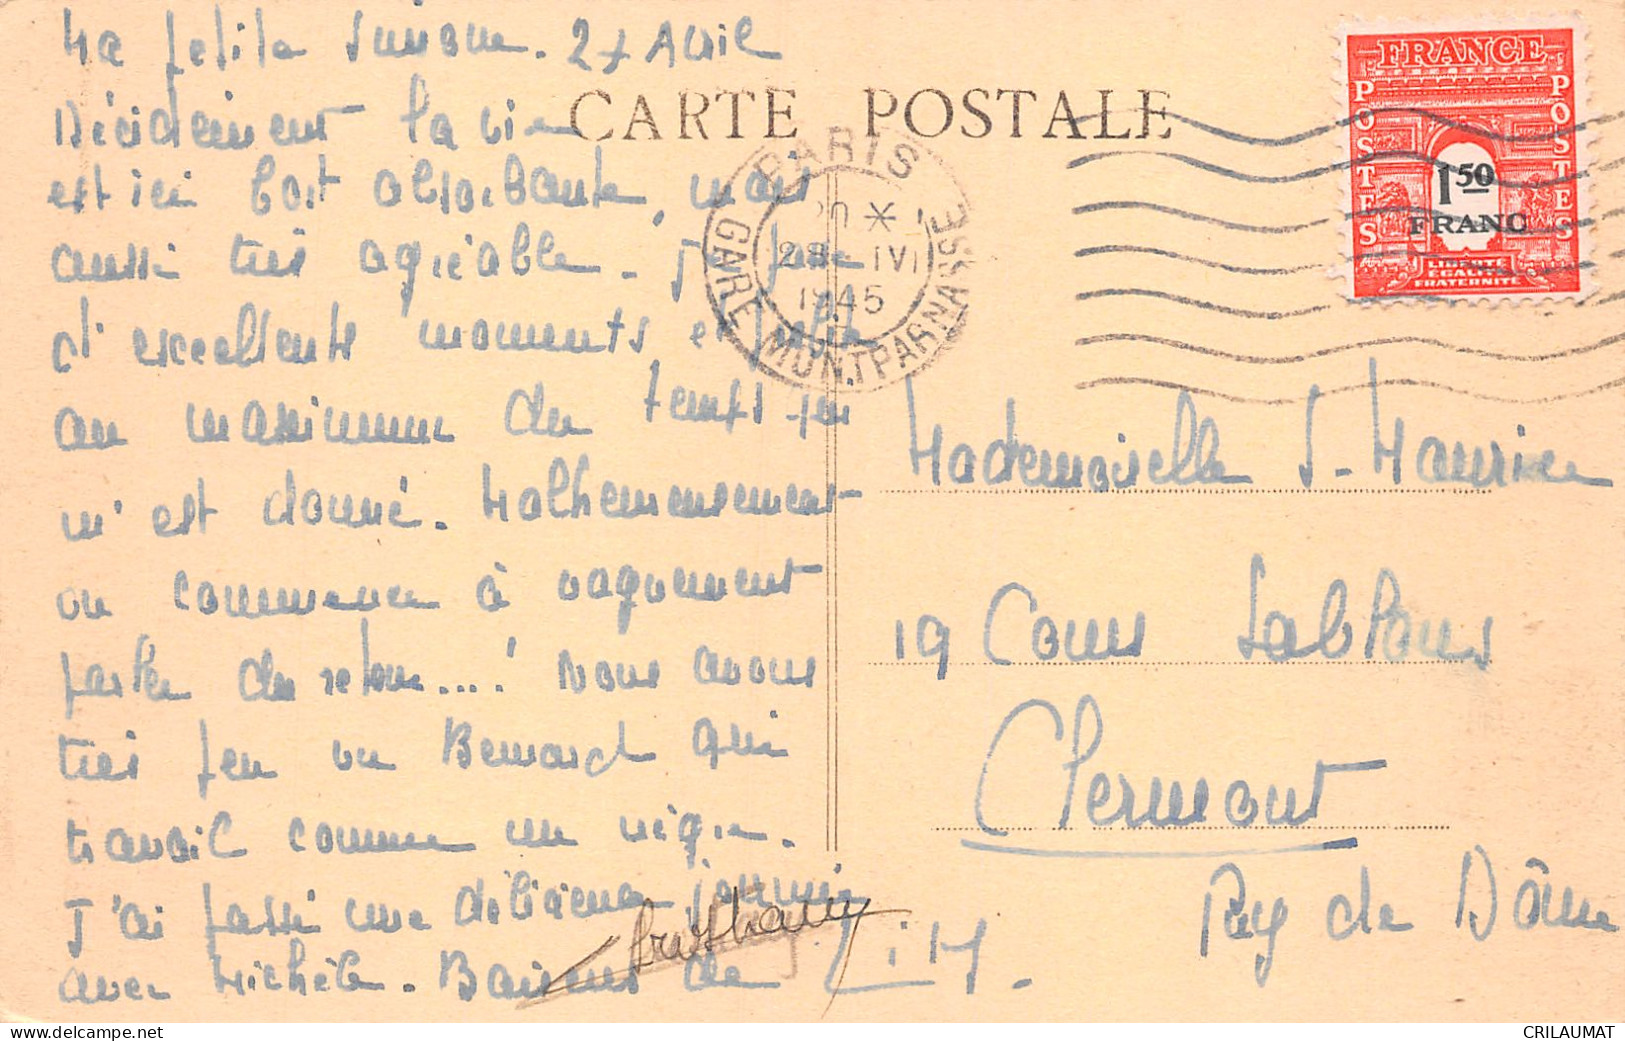 Ma petite Simone. 27 Avril
Décidement la vie
est ici bort absorbante, mais
aussi très agréable. Je passe
d'excellents moments, et
au maximum du temps qui
m'est donné. Malheureusement
on commence à vaguement
parler du retour....! Nous avons
très peu vu Bernard qui
travail comme un nègre.
J'ai passé une délicieuse journée
avec Michèle. Baisers de
CARTE POSTALE
PARIS
28 IV
1945
GARE MONTPARNASSE
FRANCE
POSTES
POSTES
1 50
FRANC
LIBERTÉ
ÉGALITÉ
FRATERNITÉ
Mademoiselle S. Maurice
19 Cours Sablons
Clermont
Puy de Dôme
CRILAUMAT